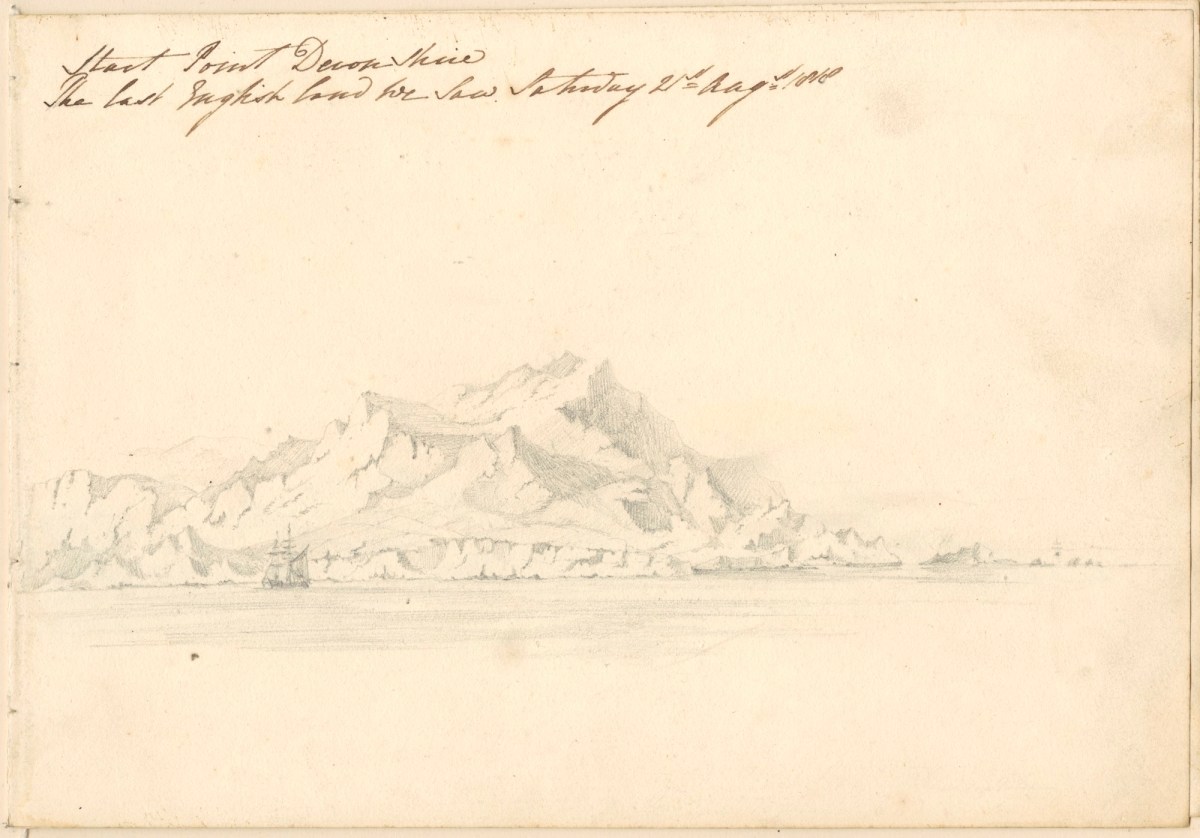 Start Point Devon Shire
The last English land we saw. Saturday 21st Augst